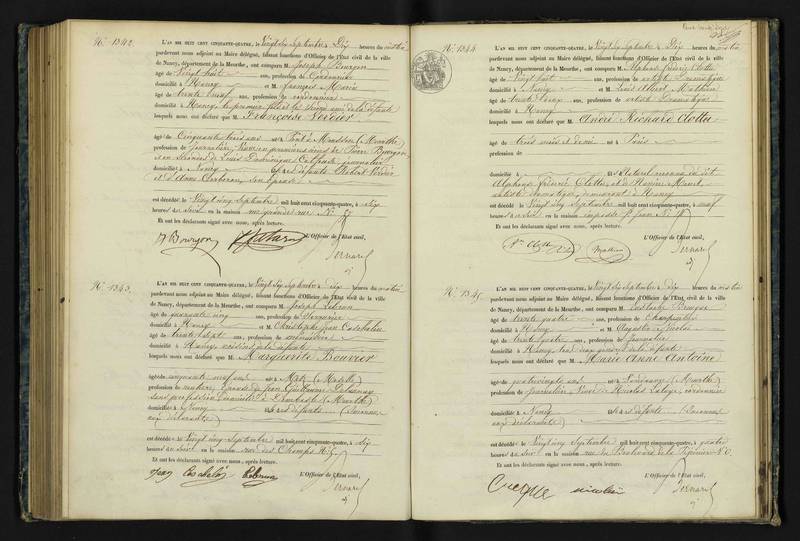 N.º 1342.
L'AN MIL HUIT CENT CINQUANTE-QUATRE, le Vingt six Septembre à Dix heures du matin
pardevant nous adjoint au Maire délégué, faisant fonctions d'Officier de l'Etat civil de la ville
de Nancy, département de la Meurthe, ont comparu M. Joseph Bourgon
âgé de Vingt huit ans, profession de Cordonnier
domicilié à Nancy et M. François Marin
âgé de trente neuf ans, profession de cordonnier
domicilié à Nancy, le premier fils et le second ami de la défunte
lesquels nous ont déclaré que M. Françoise Verdier
âgé de Cinquante trois ans né à Pont à Mousson (Meurthe)
profession de journalière, Veuve en premières noces de Pierre Bourgon
et en secondes de Louis Dominique journalier
domicilié à Nancy fils de défunts Verdier
et d'Anne son épouse
est décédé le Vingt cinq Septembre mil huit cent cinquante-quatre, à
heures du soir en la maison rue grande rue N.º 57
Et ont les déclarants signé avec nous, après lecture.
J Bourgon L'Officier de l'Etat civil,
Bernard
adj
N.º 1343.
L'AN MIL HUIT CENT CINQUANTE-QUATRE, le Vingt six Septembre à dix heures du matin
pardevant nous adjoint au Maire délégué, faisant fonctions d'Officier de l'Etat civil de la ville
de Nancy, département de la Meurthe, ont comparu M. Joseph Lebrun
âgé de quarante cinq ans, profession de Serrurier
domicilié à Nancy et M. Christophe Jean
âgé de trente sept ans, profession de menuisier
domicilié à Nancy, voisins de la défunte
lesquels nous ont déclaré que M. Marguerite Bouvier
âgé de cinquante neuf ans né à Metz (Moselle)
profession de rentière, épouse de Jean Guillaume
sans profession domicilié à Dombasle (Meurthe)
domicilié à Nancy fils de défunts (inconnus
aux déclarants)
est décédé le Vingt cinq Septembre mil huit cent cinquante-quatre, à dix
heures du soir en la maison rue des Champs N.º
Et ont les déclarants signé avec nous, après lecture.
Jean Lebrun L'Officier de l'Etat civil,
Bernard
adj
N.º 1344
L'AN MIL HUIT CENT CINQUANTE-QUATRE, le Vingt six Septembre à Dix heures du matin
pardevant nous adjoint au Maire délégué, faisant fonctions d'Officier de l'Etat civil de la ville
de Nancy, département de la Meurthe, ont comparu M. Alphonse
âgé de Vingt huit ans, profession de artiste Dramatique
domicilié à Nancy et M. Louis Albert
âgé de trente ans, profession de artiste Dramatique
domicilié à Nancy
lesquels nous ont déclaré que M. André Richard
âgé de trois mois et demi né à Paris
profession de
domicilié à fils
Alphonse
artiste dramatique, demeurant à Nancy
est décédé le Vingt cinq Septembre mil huit cent cinquante-quatre, à neuf
heures du soir en la maison impasse St Jean N.º
Et ont les déclarants signé avec nous, après lecture.
L'Officier de l'Etat civil,
Bernard
adj
N.º 1345.
L'AN MIL HUIT CENT CINQUANTE-QUATRE, le Vingt six Septembre à Dix heures du matin
pardevant nous adjoint au Maire délégué, faisant fonctions d'Officier de l'Etat civil de la ville
de Nancy, département de la Meurthe, ont comparu M.
âgé de trente quatre ans, profession de Charpentier
domicilié à Nancy et M. Augustin Nicolas
âgé de trente quatre ans, profession de journalier
domicilié à Nancy, tous deux gendres de la défunte
lesquels nous ont déclaré que M. Marie Anne Antoine
âgé de quatre vingts ans né à (Meurthe)
profession de journalière, Veuve de Nicolas cordonnier
domicilié à Nancy fils de défunts (inconnus
aux déclarants)
est décédé le Vingt cinq Septembre mil huit cent cinquante-quatre, à quatre
heures du soir en la maison rue du Boulevard de la Pépinière N.º
Et ont les déclarants signé avec nous, après lecture.
nicolas L'Officier de l'Etat civil,
Bernard
adj